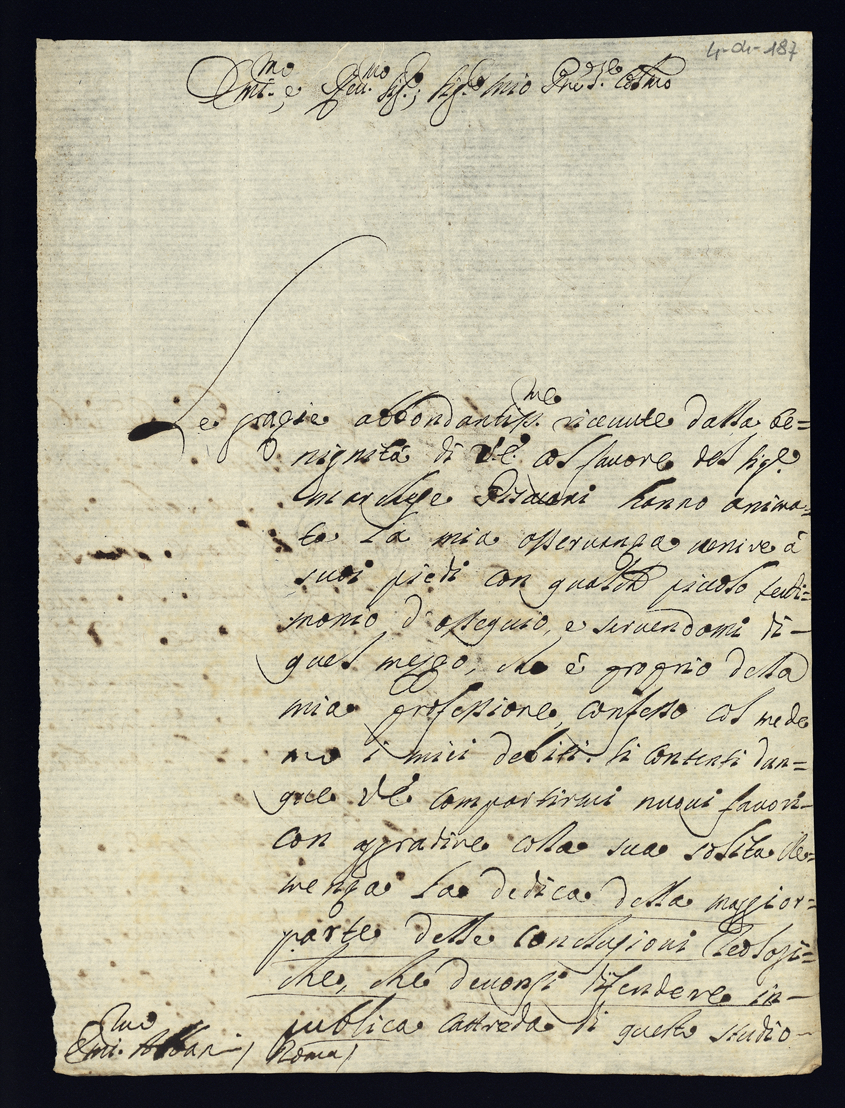 4-04-187
Em.mo e Rev.mo Sig.r, Sig.r mio P.ne
Le grazie abbondantiss.me riceuute dalla be=
nignità di V.E. col fauore del Sig.r
Marchese hanno anima=
to la mia osseruanza uenire à
suoi piedi con qualche picciolo testi=
monio d'ossequio, e seruendomi di
quel mezzo, che è proprio della
mia professione, confesso col mede
mo i miei debiti. Si contenti dun=
que V.E. compartirmi nuoui fauori
con aggradire colla sua solita cle=
menza la dedica della maggior
parte delle conclusioni Teologi=
che, che deuonsi difendere in
publica cattreda di questo studio
Em.mo Albani / Roma /